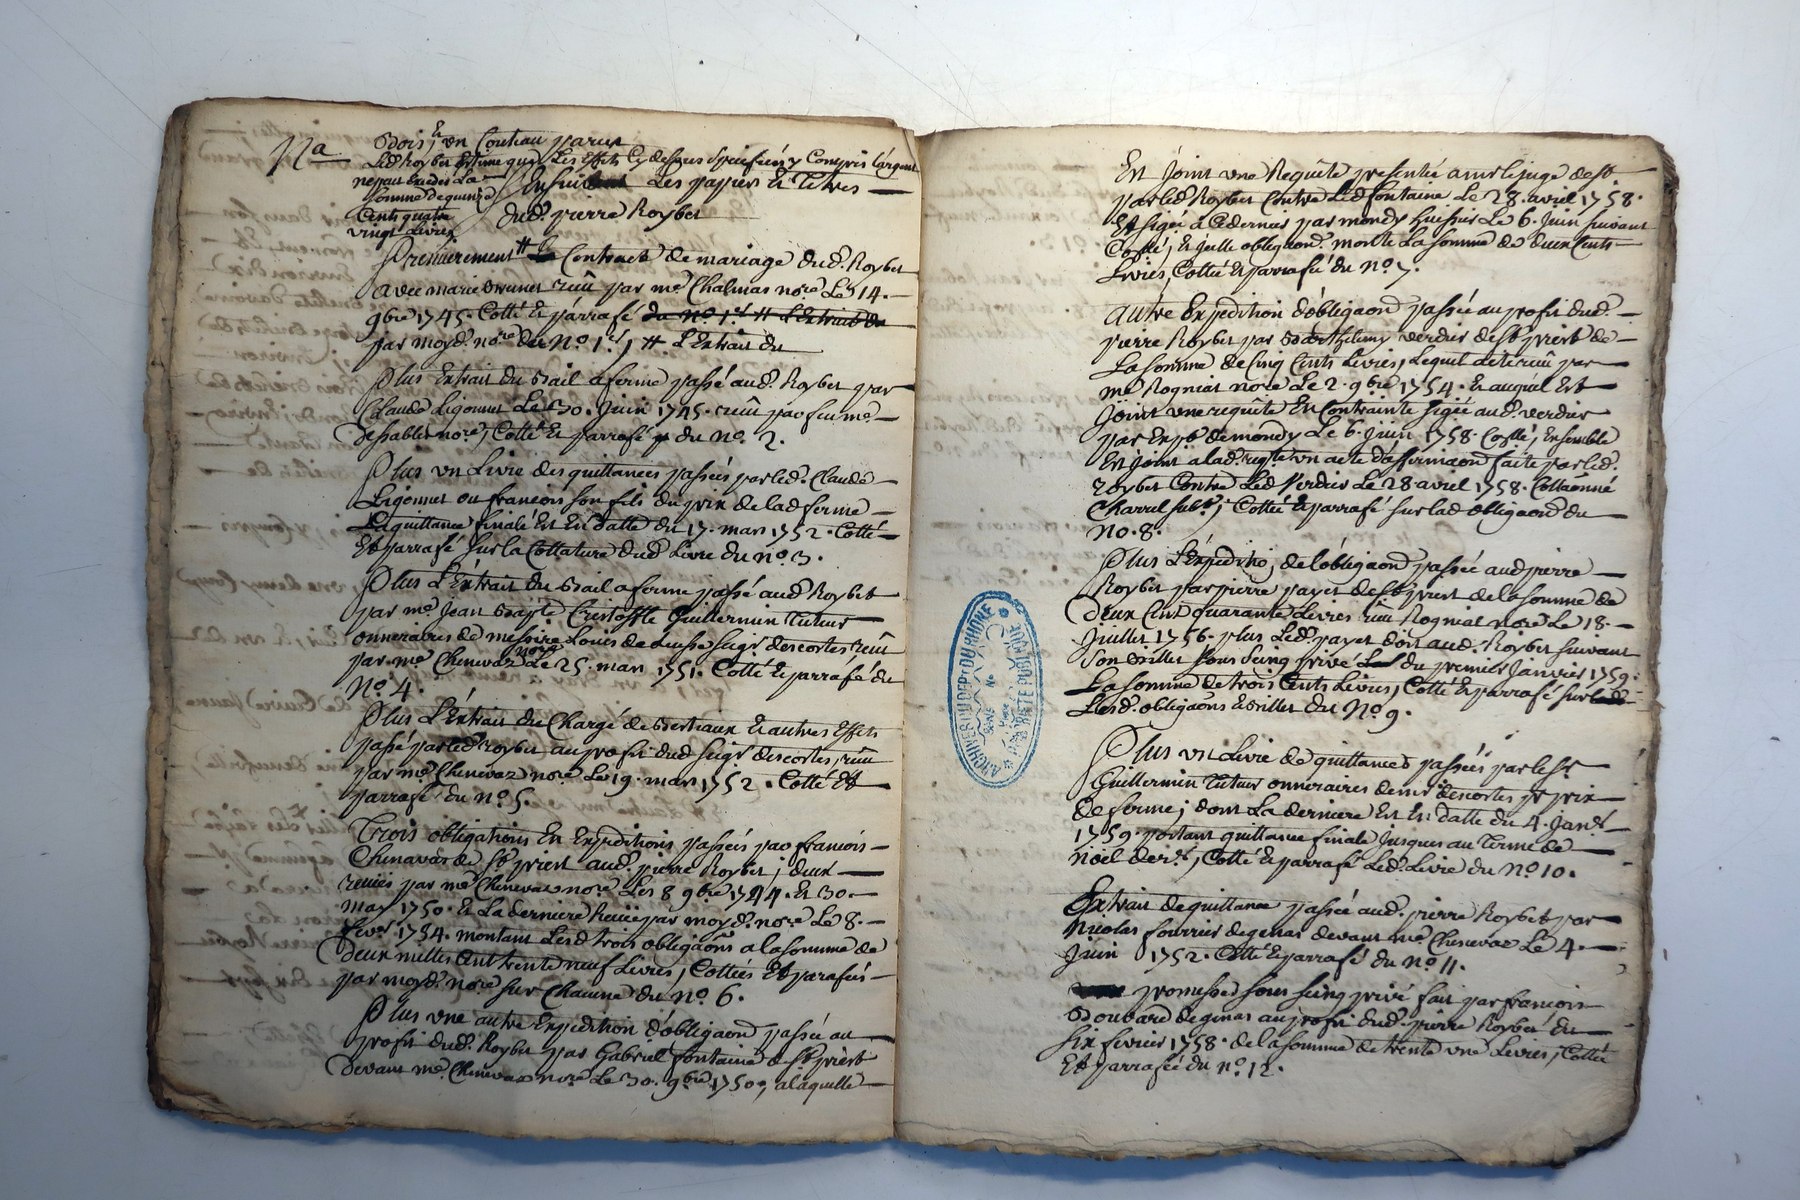 Na
Bois, & un Couteau parux
Led Roybet Estime que Les Effets Cy dessus Speciffiés y Compris l'argent
ne peut Exceder La
Somme de quinze
Cents quatre
vingt Livres
Ensuivent Les papiers Et Tittres
dud. pierre Roybet
Premierement # Le Contract de mariage dud. Roybet
avec marie Brunet reçu par me Chalmas nore Le 14.
9bre 1745. Cotté Et parrafé du no 1er # L'Extrait du
par moyd. nore du No. 1er, # L'Extrait du
Plus Extrait du Bail a ferme passé aud. Roybet par
Claude Ligonnet Le 30. Juin 1745. reçu par feu me
desable nore, Cotté Et parrafé du No. 2.
Plus un Livre des quittances passées par led. Claude
Ligonnet ou francois son fils du prix de lad ferme
La quittance finale Est En datte du 17. mars 1752. Cotté
Et parrafé Sur la Cottature dud Livre du no. 3.
Plus L'Extrait du Bail a ferme passé aud Roybet
par me Jean Bapte Cristofle Guillermin Tuteur
onneraires de messire Louis de Leusse Seigr descortes reçu
par me Chenevaz nore Le 25. mars 1751. Cotté Et parrafé du
No. 4.
Plus L'Extrait du Chargé de Bestiaux Et autres Effets
passé par led Roybet au profit dud Seigr descortes, reçu
par me Chenevaz nore Le 19. mars 1752. Cotté Et
parrafé du no 5.
Trois obligations En Expeditions passées par francois
Chenavas de St priest aud. pierre Roybet, deux
reçües par me Chenevaz nore Les 8 9bre 1744. Et 30.
mars 1750. Et La derniere Reçüe par moyd. nore Le 8.
fevr. 1754. montant Lesd trois obligaons a la somme de
Deux milles Cent trente neuf Livres, Cottées Et parafés
par moyd. nore sur Chacune du No. 6.
Plus une autre Expedition d'obligaon passée au
profit dud. Roybet par Gabriel fontaine de St priest
devant me. Chenevaz nore Le 30. 9bre 1750, a laquelle
Est Joint une Requête presentée a mr le juge de St
par led Roybet Contre Led fontaine Le 28. avril 1758.
Et Sigée a Ce dernier par mondy huissier Le 6. Juin suivant
Contlé, Et Jcelle obligaon. monte La somme de deux Cents
Livres, Cottée Et parrafé du No. 7.
autre Expedition d'obligaon passée au profit dud.
pierre Roybet par Barthelemy verdier de St priest de
La somme de Cinq Cents Livres, Lequel acte reçu par
me Rogniat nore Le 2. 9bre 1754. Et auquel Est
Joint une requête En Contrainte sigée aud. verdier
par Exp. de mondy Le 6. Juin 1758. Contlé, Ensemble
Est Joint a lad. reqte un acte d'affirmaon faite par led.
Roybet Contre Led Verdier Le 28 avril 1758. Collaonné
Charrel subt, Cottée Et parrafé sur lad obligaon du
No. 8.
Plus L'Expeditio, de l'obligaon passée aud pierre
Roybet par pierre payet de St priest de la somme de
Deux Cent quarante Livres reçu Rogniat nore Le 18.
Juillet 1756. plus Led. payet doit aud. Roybet suivant
son Billet sous seing privé du premier Janvier 1759.
La somme de trois Cents Livres, Cotté Et parrafé sur
Lesd. obligaons & Billet du No. 9.
Plus un Livre de quittances passées par le Sr
Guillermin Tuteur onneraires de mr descortes pr prix
de ferme, dont La derniere Est En datte du 4. janvr
1759. portant quittance finale Jusques au Terme de
Noël der., Cotté Et parrafé Led. Livre du No. 10.
Extrait de quittance passée aud. pierre Roybet par
Nicolas fourrier de genas devant me Chenevaz Le 4.
Juin 1752. Cotté Et parrafé du No. 11.
promesse sous seing privé fait par francois
Bouvard de genas au profit dud. pierre Roybet du
six fevrier 1758. de la somme de trente une Livres, Cottée
Et parrafée du No. 12.
ARCHIVES DU DEPT DU RHONE
PROPRIÉTÉ PUBLIQUE